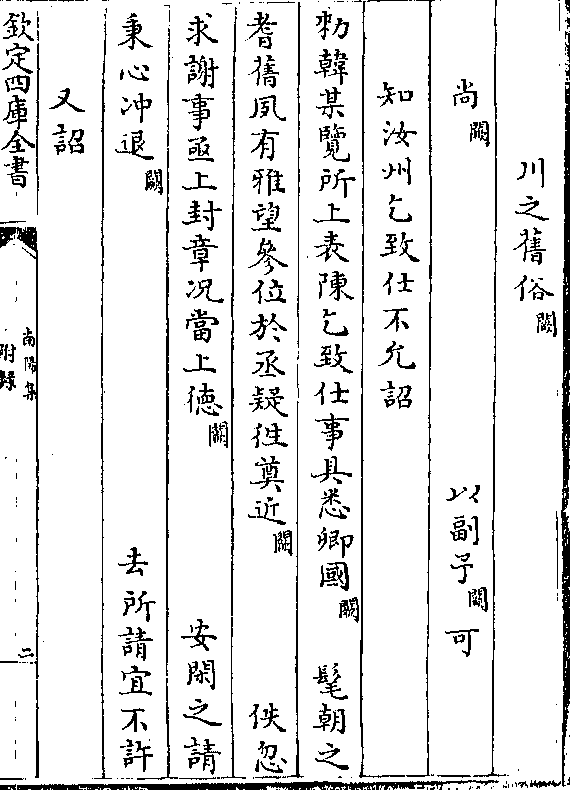 川之舊俗闕
尚闕 以副予闕 可
知汝州乞致仕不允詔
勑韓某覽所上表陳乞致仕事具悉卿國闕 髦朝之
耆舊夙有雅望參位於丞疑徃奠近闕 佚忽
求謝事亟上封章况當上德闕 安閑之請
秉心冲退闕 去所請宜不許
又詔
欽定四庫全書
南陽集
附錄
二